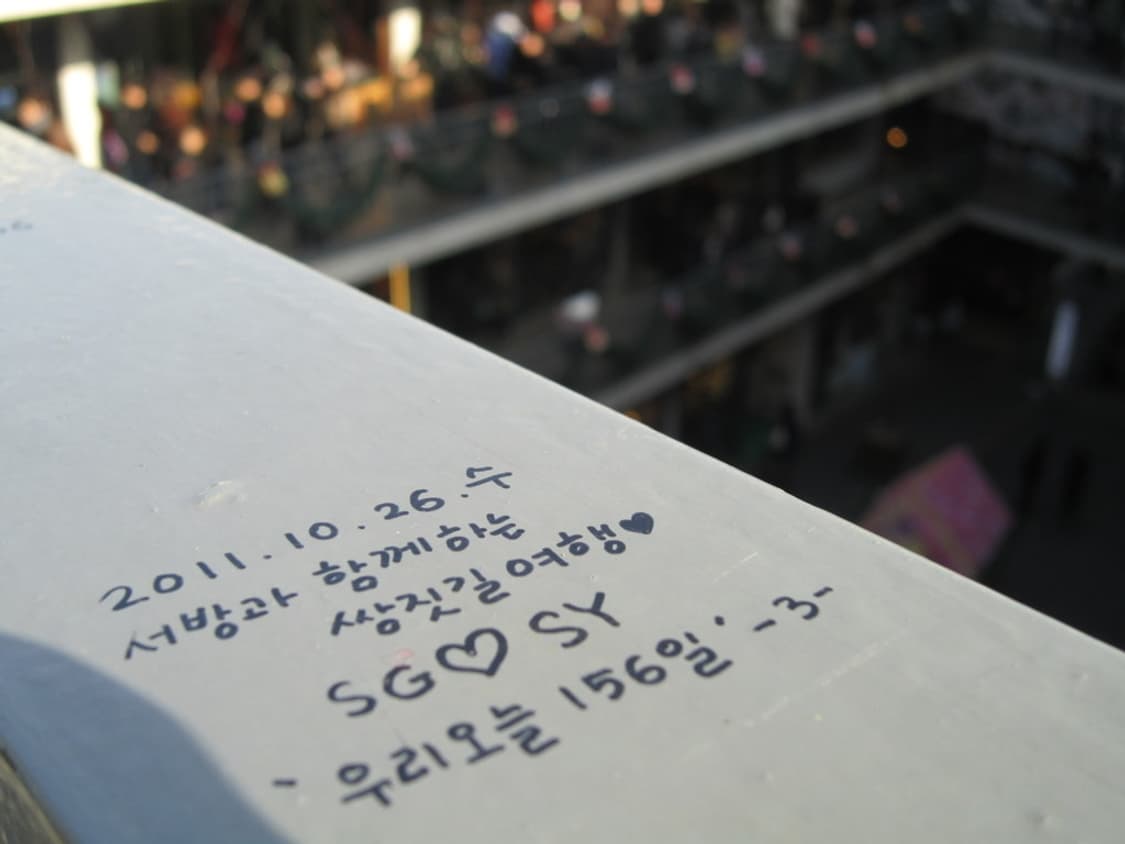 2011.10.26.수
서방과 함께하는
쌈짓길여행♥
SG♡SY
`우리오늘 156일' -3-